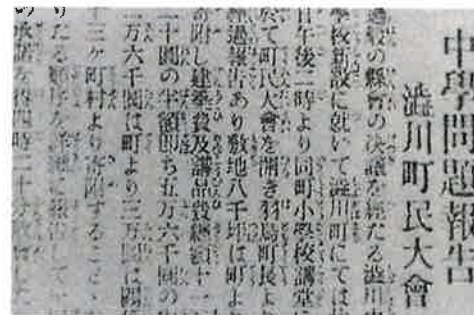 中學問題報告
澁川町民大會
過般の縣會の決議を經たる澁川中
學校新設に就いて澁川町にては
日午後二時より同町小學校講堂に
於て町民大會を開き羽鳥町長よ
經過報告あり敷地八千坪は町よ
寄附し建築費及講品費總額十一
二千圓の半額卽ち五万六千圓の
二万六千圓は町より三万圓は關係
十三ヶ町村より寄附すること
たる順序を詳細に報告して
承諾を得四時二十分散會した